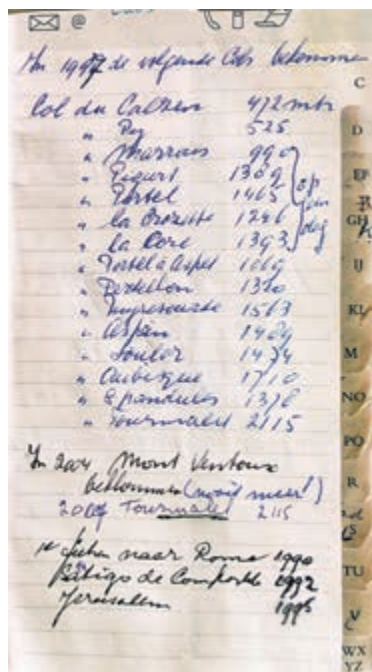 @
In 1997 de volgende Cols beklommen
Col du Calzen 472 mtr
" Py 525
" Marrous 990
" Péguère
" Portel 1465 op
" la Crouzette 1246 één
" la Core 1393 dag
" Portel d'Aspet 1069
" 
" Peyresourde 1563
" Aspin
" Soulor 1474
" Aubisque 1710
" Spandelles 1378
" Tourmalet 2115
In 2004 Mont Ventoux
beklommen (nooit meer!)
Tourmalet 2115
naar Rome 1990
de Compostela 1992
Jerusalem 1995
C
D
EF
GH
IJ
KL
M
NO
PQ
R
S
TU
V
WX
YZ